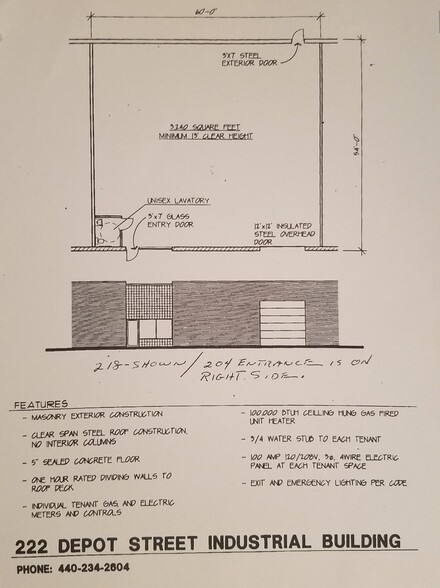 60'-0"
3'X7' STEEL
EXTERIOR DOOR
3240 SQUARE FEET
MINIMUM 13' CLEAR HEIGHT
54'-0"
UNISEX LAVATORY
3'x7' GLASS
ENTRY DOOR
12'x12' INSULATED
STEEL OVERHEAD
DOOR
218-SHOWN / 204 ENTRANCE IS ON
RIGHT SIDE.
FEATURES
- MASONRY EXTERIOR CONSTRUCTION
- CLEAR SPAN STEEL ROOF CONSTRUCTION,
NO INTERIOR COLUMNS
- 5" SEALED CONCRETE FLOOR
- ONE HOUR RATED DIVIDING WALLS TO
ROOF DECK
- INDIVIDUAL TENANT GAS, AND ELECTRIC
METERS AND CONTROLS
- 100,000 BTUH CEILLING HUNG GAS FIRED
UNIT HEATER
- 3/4 WATER STUB TO EACH TENANT
- 100 AMP 120/208V, 3ø, 4WIRE ELECTRIC
PANEL AT EACH TENANT SPACE
- EXIT AND EMERGENCY LIGHTING PER CODE
222 DEPOT STREET INDUSTRIAL BUILDING
PHONE: 440-234-2604